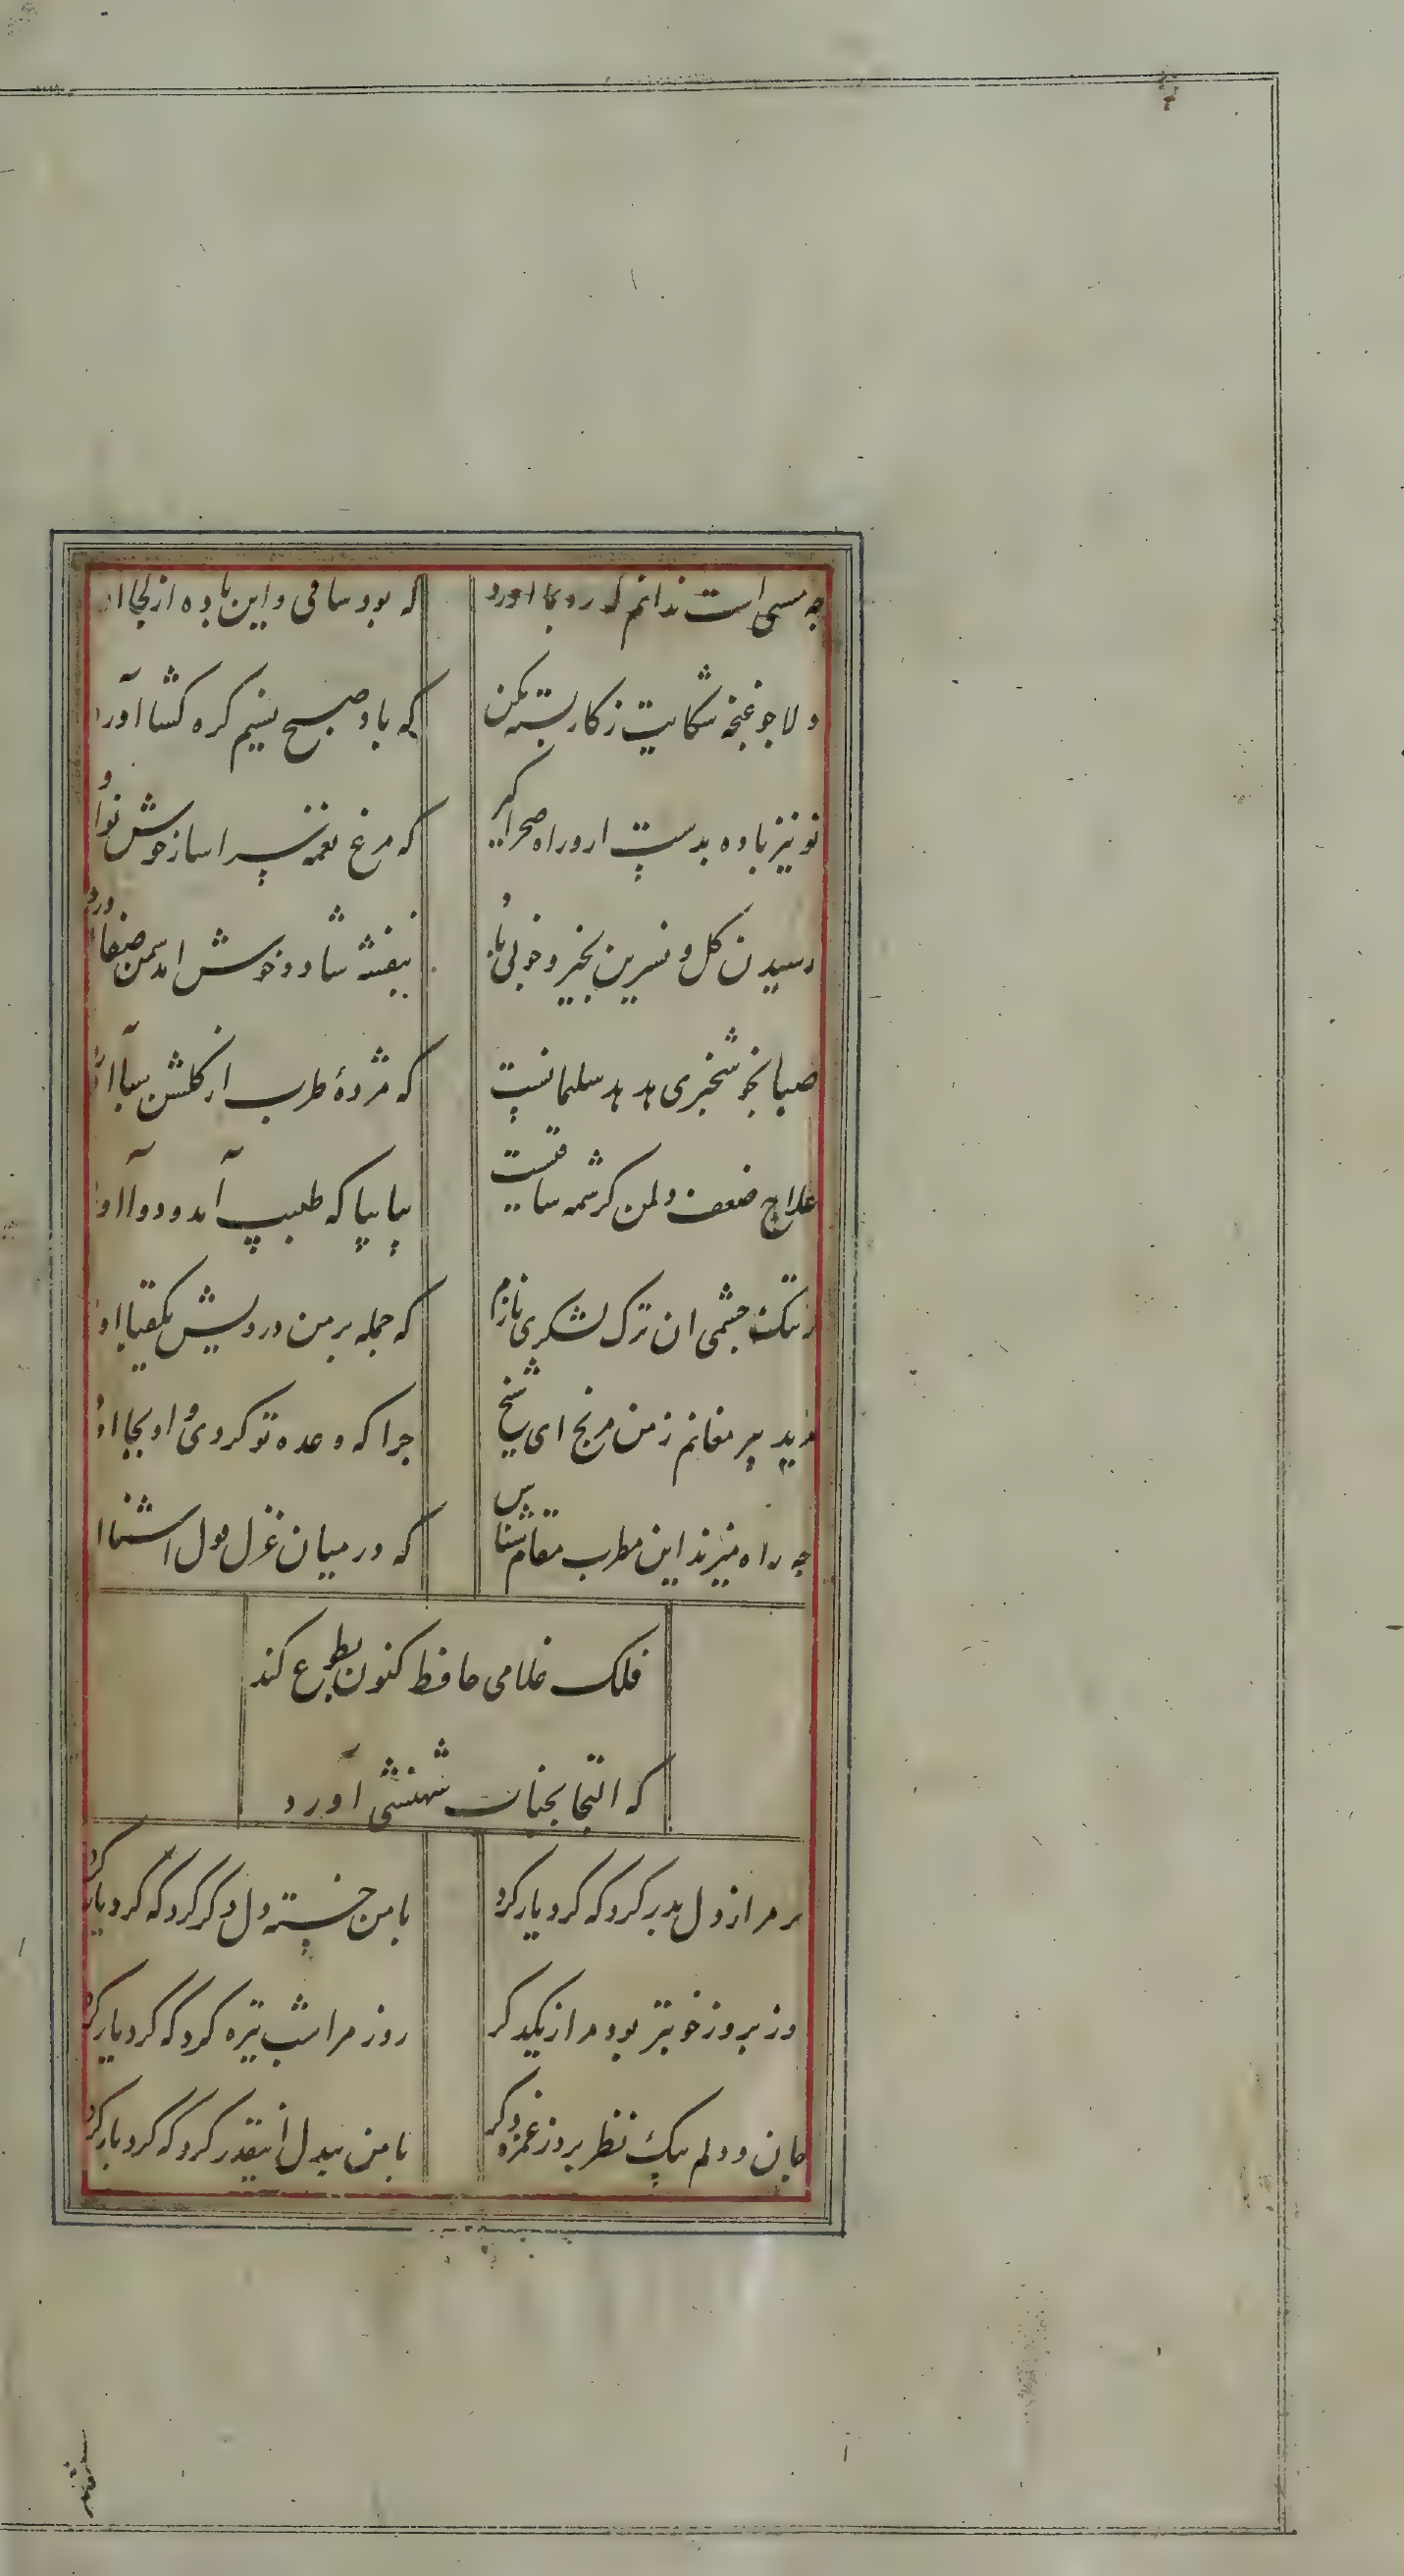 چه مستی است ندانم که رو بما اورد که بود ساقی و این باده از کجا ا
دلا چو غنچه شکایت ز کار بسته مکن که باد صبح نسیم کره کشا آورد
تو نیز باده بدست ار و راه صحرا کیر که مرغ نغمه سرا ساز خوش نوا
رسیدن کل و نسرین بخیر و خوبی باد بنفشه شاد و خوش امد سمن صفا
صبا بخوشخبری هدهد سلیمانست که مژدهٔ طرب از کلشن سبا
علاج ضعف دلمن کرشمه ساقیست بیا بیا که طبیب آمد و دوا آو
ز تنک چشمی ان ترک لشکری نازم که حمله بر من درویش یکقبا او
مرید پیر مغانم ز من مرنج ای شیخ چرا که وعده تو کردی و او بجا او
چه راه میزند این مطرب مقام شناس که در میان غزل قول اشنا ا
فلک غلامی حافظ کنون بطوع کند
که التجا بجناب شهنشی آورد
مر مرا ز دل بدر کرد که کرد یار کرد با من خسته دل دکر کرد که کرد یار کرد
روز بروز خوبتر بود مرا ز یکدکر روز مرا شب تیره کرد که کرد یار کرد
جان و دلم بیک نظر برد ز غمزه دکر با من بیدل اینقدر کرد که کرد یار کرد